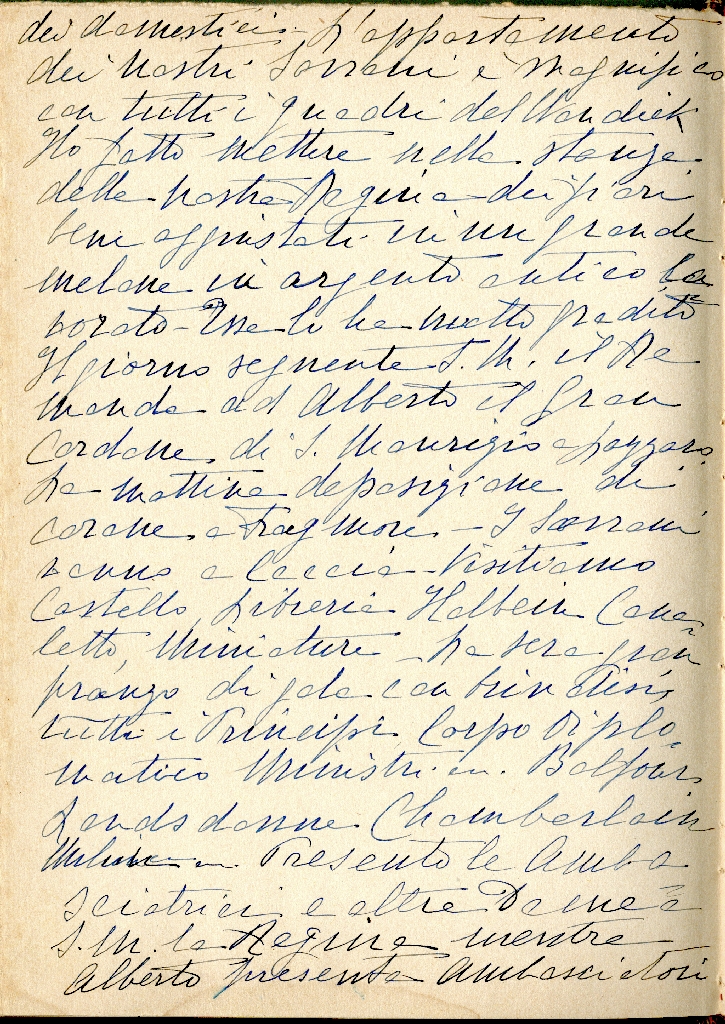 dei domestici. L'appartamento
dei nostri Sovrani è magnifico
con tutti i quadri del Vandick
Ho fatto mettere nella stanza
della nostra Regina dei fiori
bene aggiustati in un grande
melone in argento antico la
vorato - Essa lo ha molto gradito
Il giorno seguente S. M. il Re
manda ad Alberto il Gran
Cordone di S. Maurizio e Lazzaro.
La mattina deposizione di
corone a Frogmore - I Sovrani
vanno a caccia - Visitiamo
Castello, Libreria Holbein Cana-
letto, Miniature - La sera gran
pranzo di gala con brindisi,
tutti i Principi Corpo Diplo-
matico Ministri Balfour
Landsdonne Chamberlain
Presento le Amba
sciatrici e altre Dame a
S. M. la Regina mentre
Alberto presenta Ambasciatori